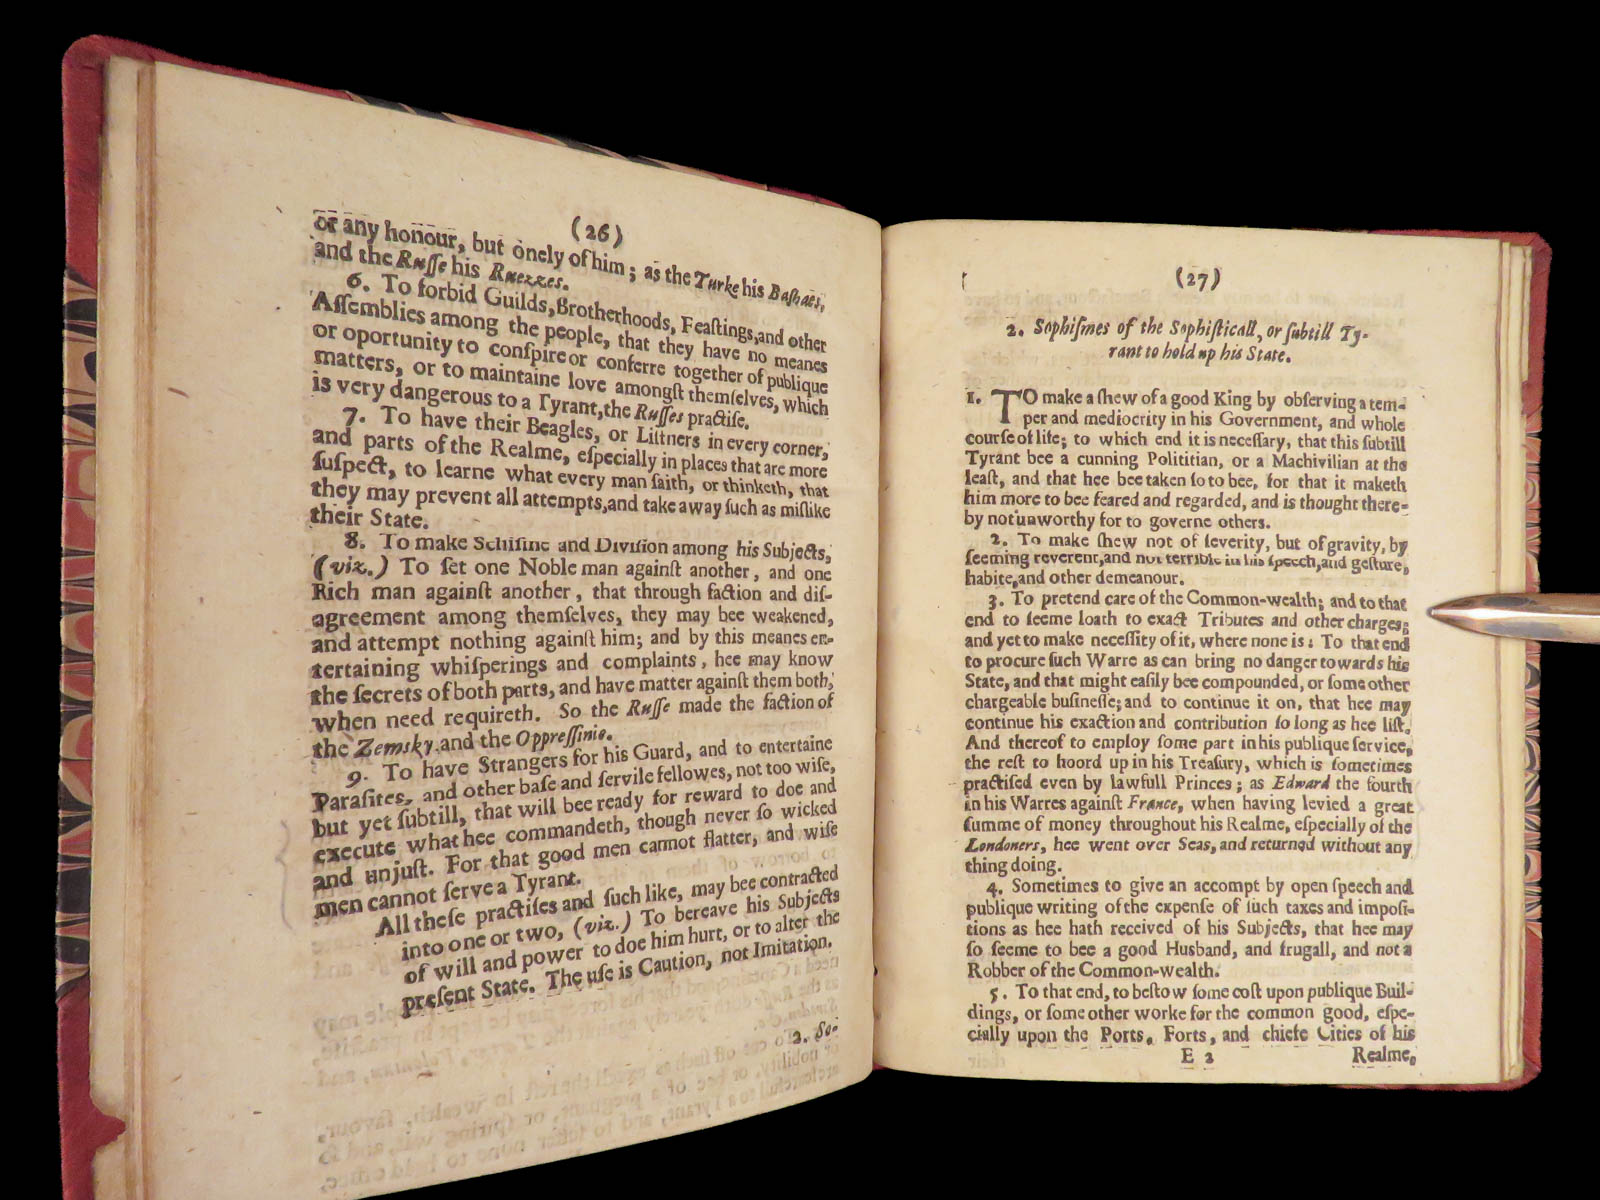 (26)
or any honour, but onely of him; as the Turke his Bashaes,
and the Ruſſe his Ruezzes.
6. To forbid Guilds, Brotherhoods, Feaſtings, and other
Aſſemblies among the people, that they have no meanes
or oportunity to conſpire or conferre together of publique
matters, or to maintaine love amongſt themſelves, which
is very dangerous to a Tyrant, the Ruſſes practiſe.
7. To have their Beagles, or Liſtners in every corner,
and parts of the Realme, eſpecially in places that are more
ſuſpect, to learne what every man ſaith, or thinketh, that
they may prevent all attempts, and take away ſuch as miſlike
their State.
8. To make Schiſme and Diviſion among his Subjects,
(viz.) To ſet one Noble man againſt another, and one
Rich man againſt another, that through faction and diſ-
agreement among themſelves, they may bee weakened,
and attempt nothing againſt him; and by this meanes en-
tertaining whiſperings and complaints, hee may know
the ſecrets of both parts, and have matter againſt them both,
when need requireth. So the Ruſſe made the faction of
the Zemsky and the Oppreſſinie.
9. To have Strangers for his Guard, and to entertaine
Paraſites, and other baſe and ſervile fellowes, not too wiſe,
but yet ſubtill, that will bee ready for reward to doe and
execute what hee commandeth, though never ſo wicked
and unjuſt. For that good men cannot flatter, and wiſe
men cannot ſerve a Tyrant.
All theſe practiſes and ſuch like, may bee contracted
into one or two, (viz.) To bereave his Subjects
of will and power to doe him hurt, or to alter the
preſent State. The uſe is Caution, not Imitation.
2. So-
(27)
2. Sophiſmes of the Sophiſticall, or ſubtill Ty-
rant to hold up his State.
1. TO make a ſhew of a good King by obſerving a tem-
per and mediocrity in his Government, and whole
courſe of life; to which end it is neceſſary, that this ſubtill
Tyrant bee a cunning Polititian, or a Machivilian at the
leaſt, and that hee bee taken ſo to bee, for that it maketh
him more to bee feared and regarded, and is thought there-
by not unworthy for to governe others.
2. To make ſhew not of ſeverity, but of gravity, by
ſeeming reverent, and not terrible in his ſpeech, and geſture,
habite, and other demeanour.
3. To pretend care of the Common-wealth; and to that
end to ſeeme loath to exact Tributes and other charges;
and yet to make neceſſity of it, where none is: To that end
to procure ſuch Warre as can bring no danger towards his
State, and that might eaſily bee compounded, or ſome other
chargeable buſineſſe; and to continue it on, that hee may
continue his exaction and contribution ſo long as hee liſt.
And thereof to employ ſome part in his publique ſervice,
the reſt to hoord up in his Treaſury, which is ſometimes
practiſed even by lawfull Princes; as Edward the fourth
in his Warres againſt France, when having levied a great
ſumme of money throughout his Realme, eſpecially of the
Londoners, hee went over Seas, and returned without any
thing doing.
4. Sometimes to give an accompt by open ſpeech and
publique writing of the expenſe of ſuch taxes and impoſi-
tions as hee hath received of his Subjects, that hee may
ſo ſeeme to bee a good Husband, and frugall, and not a
Robber of the Common-wealth.
5. To that end, to beſtow ſome coſt upon publique Buil-
dings, or ſome other worke for the common good, eſpe-
cially upon the Ports, Forts, and chiefe Cities of his
E 2 Realme,